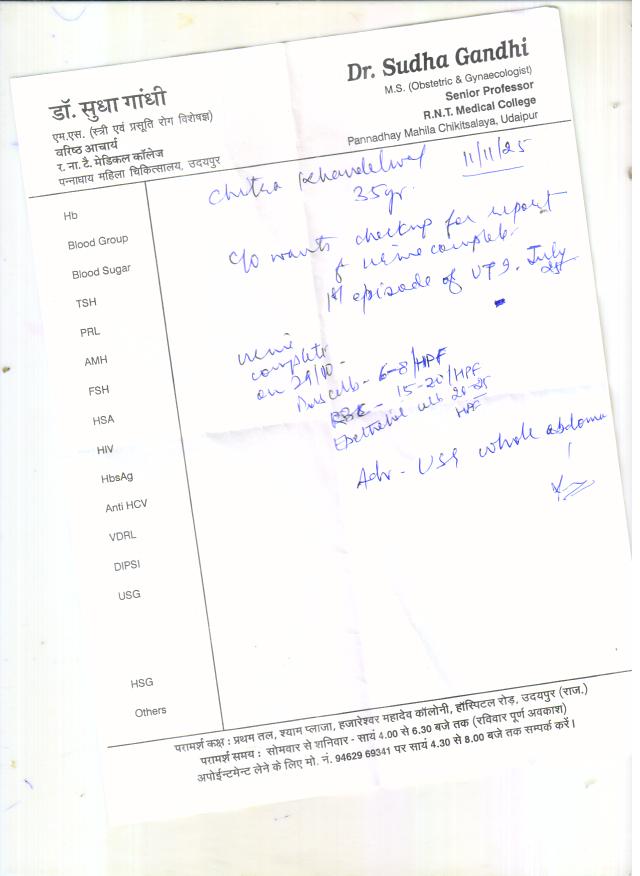 डॉ. सुधा गांधी
एम.एस. (स्त्री एवं प्रसूति रोग विशेषज्ञ)
वरिष्ठ आचार्य
र. ना. टै. मेडिकल कॉलेज
पन्नाधाय महिला चिकित्सालय, उदयपुर
Dr. Sudha Gandhi
M.S. (Obstetric & Gynaecologist)
Senior Professor
R.N.T. Medical College
Pannadhay Mahila Chikitsalaya, Udaipur
Chitra Khandelwal 11/11/25
35yr.
c/o wants checkup for report
of urine complete.
1st episode of UTI. July
urine
complete
on 29/10 -
Pus cells - 6-8/HPF
RBC - 15-20/HPF
Epethelial cells 20-25
HPF
Adv - USG whole abdomen
Hb
Blood Group
Blood Sugar
TSH
PRL
AMH
FSH
HSA
HIV
HbsAg
Anti HCV
VDRL
DIPSI
USG
HSG
Others
परामर्श कक्ष : प्रथम तल, श्याम प्लाजा, हजारेश्वर महादेव कॉलोनी, हॉस्पिटल रोड़, उदयपुर (राज.)
परामर्श समय : सोमवार से शनिवार - सायं 4.00 से 6.30 बजे तक (रविवार पूर्ण अवकाश)
अपोईन्टमेन्ट लेने के लिए मो. नं. 94629 69341 पर सायं 4.30 से 8.00 बजे तक सम्पर्क करें।